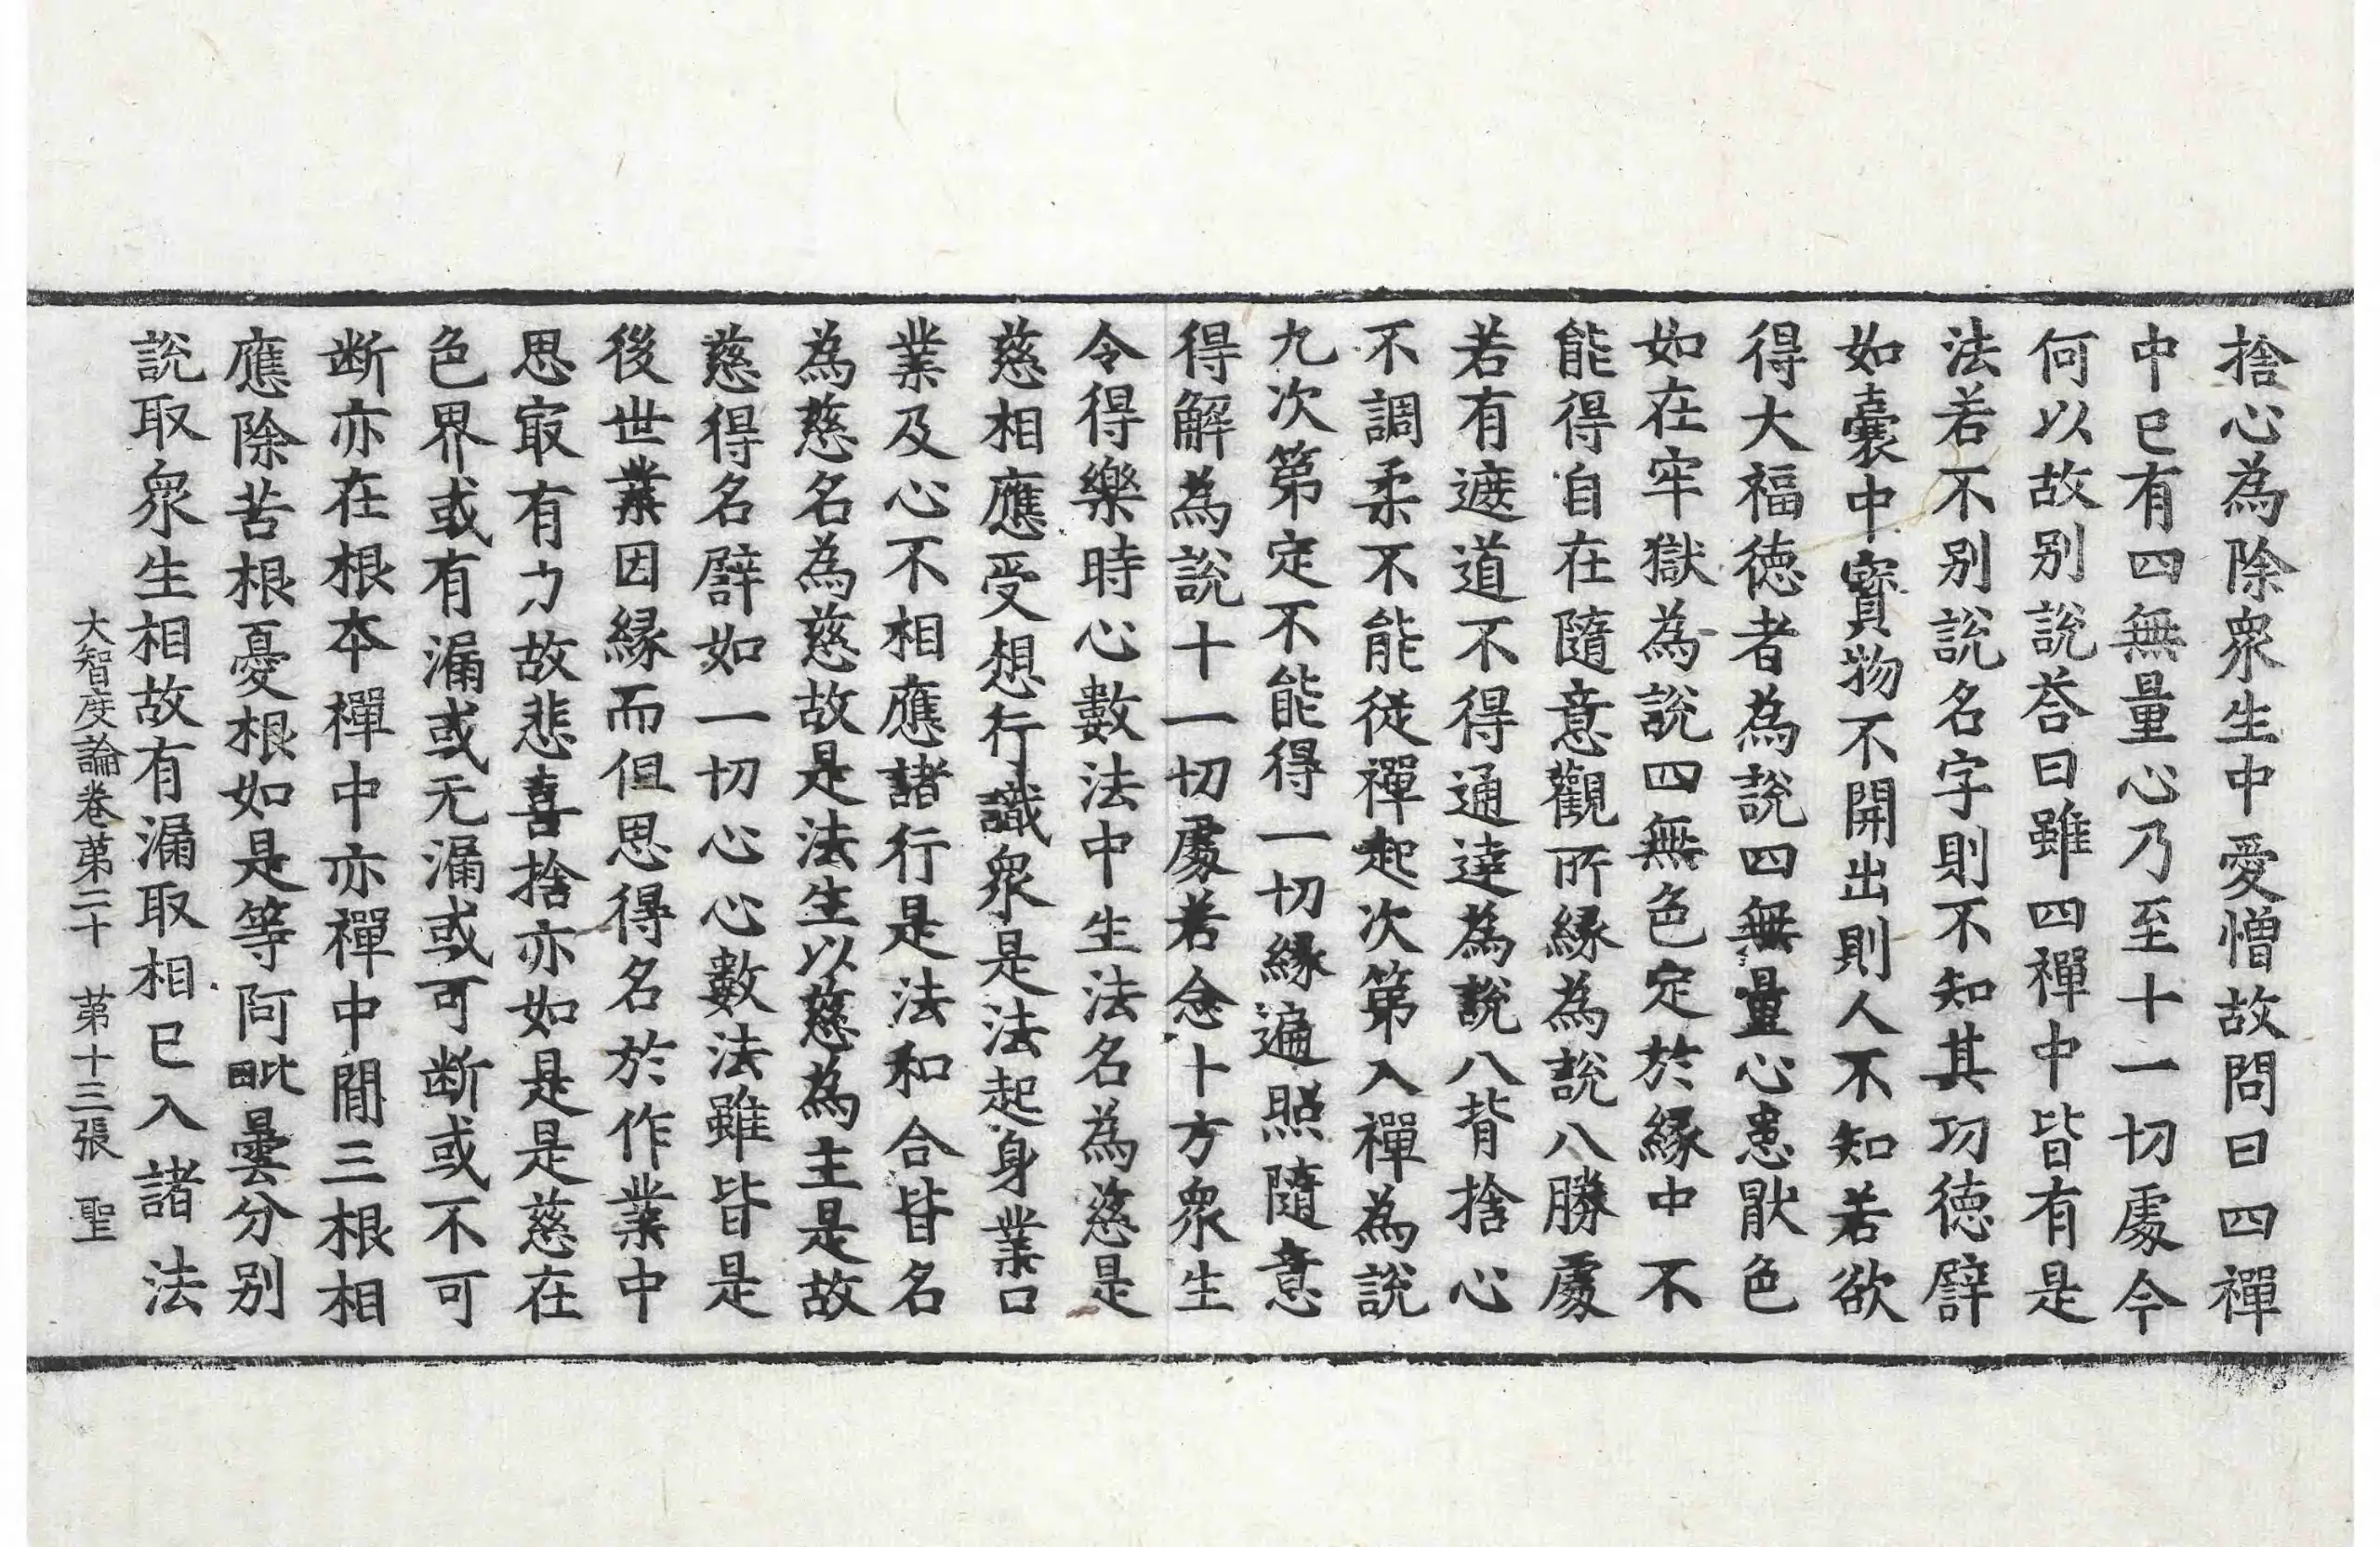 捨心為除衆生中愛憎故問曰四禪
中已有四無量心乃至十一切處今
何以故别說荅曰雖四禪中皆有是
法若不别說名字則不知其功德譬
如囊中寶物不開出則人不知若欲
得大福德者為說四無量心患猒色
如在牢獄為說四無色定於縁中不
能得自在隨意觀所縁為說八勝處
若有遮道不得通達為說八背捨心
不調柔不能從禪起次第入禪為說
九次第定不能得一切縁遍照隨意
得解為說十一切處若念十方衆生
令得樂時心數法中生法名為慈是
慈相應受想行識衆是法起身業口
業及心不相應諸行是法和合皆名
為慈名為慈故是法生以慈為主是故
慈得名譬如一切心心數法雖皆是
後世業因縁而但思得名於作業中
思冣有力故悲喜捨亦如是是慈在
色界或有漏或无漏或可断或不可
断亦在根本禪中亦禪中間三根相
應除苦根憂根如是等阿毗曇分别
説取衆生相故有漏取相已入諸法
大智度論卷第二十　第十三張　聖